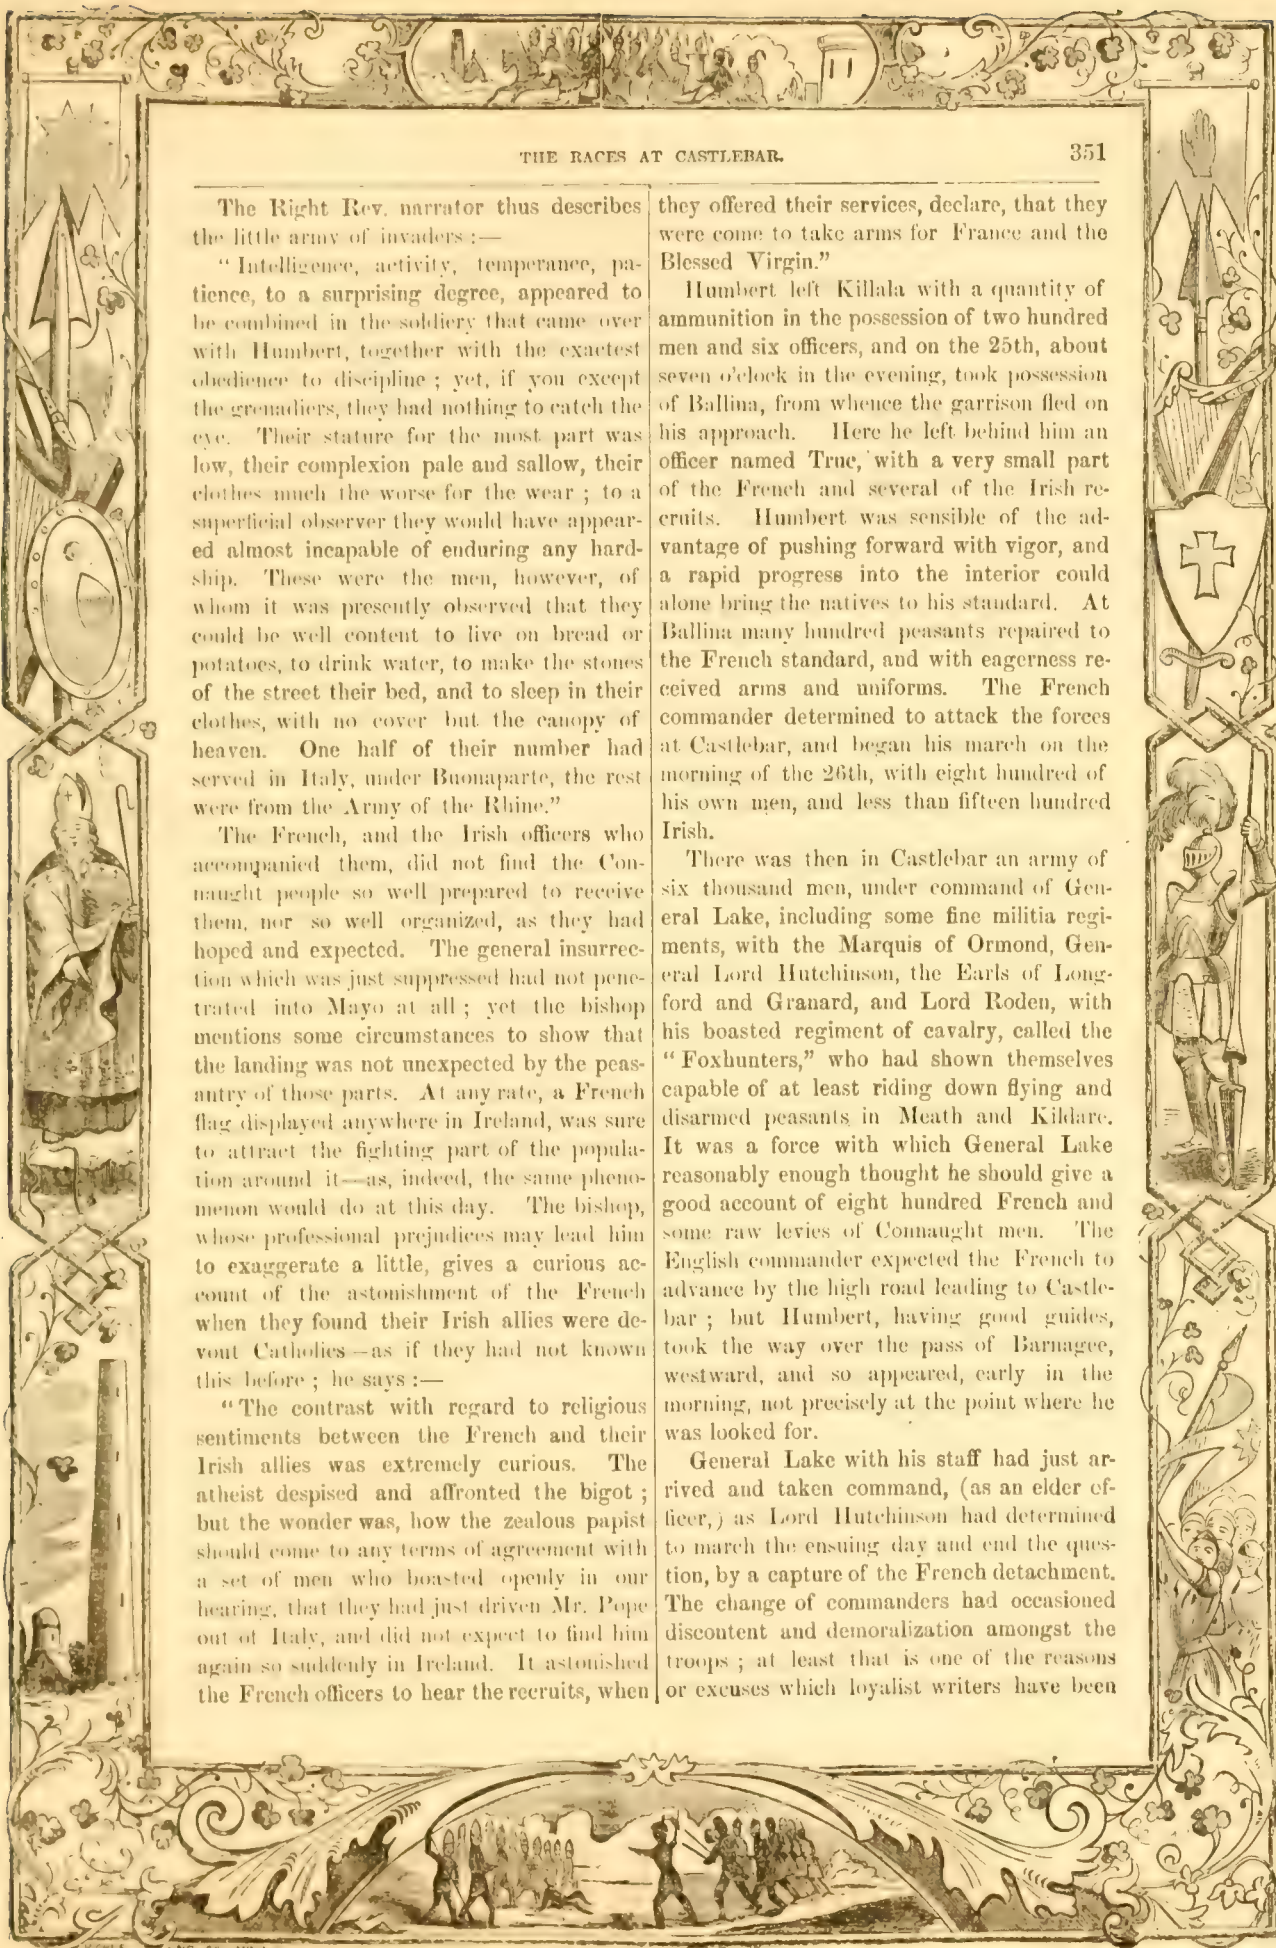 THE RACES AT CASTLEBAR.
351
The Right Rev. narrator thus describes
the little army of invaders :—
“ Intelligence, activity, temperance, pa-
tience, to a surprising degree, appeared to
be combined in the soldiery that came over
with Humbert, together with the exactest
obedience to discipline ; yet, if you except
the grenadiers, they had nothing to catch the
eye. Their stature for the most part was
low, their complexion pale and sallow, their
clothes much the worse for the wear ; to a
superficial observer they would have appear-
ed almost incapable of enduring any hard-
ship. These were the men, however, of
whom it was presently observed that they
could be well content to live on bread or
potatoes, to drink water, to make the stones
of the street their bed, and to sleep in their
clothes, with no cover but the canopy of
heaven. One half of their number had
served in Italy, under Buonaparte, the rest
were from the Army of the Rhine.”
The French, and the Irish officers who
accompanied them, did not find the Con-
naught people so well prepared to receive
them, nor so well organized, as they had
hoped and expected. The general insurrec-
tion which was just suppressed had not pene-
trated into Mayo at all ; yet the bishop
mentions some circumstances to show that
the landing was not unexpected by the peas-
antry of those parts. At any rate, a French
flag displayed anywhere in Ireland, was sure
to attract the fighting part of the popula-
tion around it—as, indeed, the same pheno-
menon would do at this day. The bishop,
whose professional prejudices may lead him
to exaggerate a little, gives a curious ac-
count of the astonishment of the French
when they found their Irish allies were de-
vout Catholics—as if they had not known
this before ; he says :—
“ The contrast with regard to religious
sentiments between the French and their
Irish allies was extremely curious. The
atheist despised and affronted the bigot ;
but the wonder was, how the zealous papist
should come to any terms of agreement with
a set of men who boasted openly in our
hearing, that they had just driven Mr. Pope
out of Italy, and did not expect to find him
again so suddenly in Ireland. It astonished
the French officers to hear the recruits, when
they offered their services, declare, that they
were come to take arms for France and the
Blessed Virgin.”
Humbert left Killala with a quantity of
ammunition in the possession of two hundred
men and six officers, and on the 25th, about
seven o’clock in the evening, took possession
of Ballina, from whence the garrison fled on
his approach. Here he left behind him an
officer named True, with a very small part
of the French and several of the Irish re-
cruits. Humbert was sensible of the ad-
vantage of pushing forward with vigor, and
a rapid progress into the interior could
alone bring the natives to his standard. At
Ballina many hundred peasants repaired to
the French standard, and with eagerness re-
ceived arms and uniforms. The French
commander determined to attack the forces
at Castlebar, and began his march on the
morning of the 26th, with eight hundred of
his own men, and less than fifteen hundred
Irish.
There was then in Castlebar an army of
six thousand men, under command of Gen-
eral Lake, including some fine militia regi-
ments, with the Marquis of Ormond, Gen-
eral Lord Hutchinson, the Earls of Long-
ford and Granard, and Lord Roden, with
his boasted regiment of cavalry, called the
“ Foxhunters,” who had shown themselves
capable of at least riding down flying and
disarmed peasants in Meath and Kildare.
It was a force with which General Lake
reasonably enough thought he should give a
good account of eight hundred French and
some raw levies of Connaught men. The
English commander expected the French to
advance by the high road leading to Castle-
bar ; but Humbert, having good guides,
took the way over the pass of Barnagee,
westward, and so appeared, early in the
morning, not precisely at the point where he
was looked for.
General Lake with his staff had just ar-
rived and taken command, (as an elder of-
ficer,) as Lord Hutchinson had determined
to march the ensuing day and end the ques-
tion, by a capture of the French detachment.
The change of commanders had occasioned
discontent and demoralization amongst the
troops ; at least that is one of the reasons
or excuses which loyalist writers have been